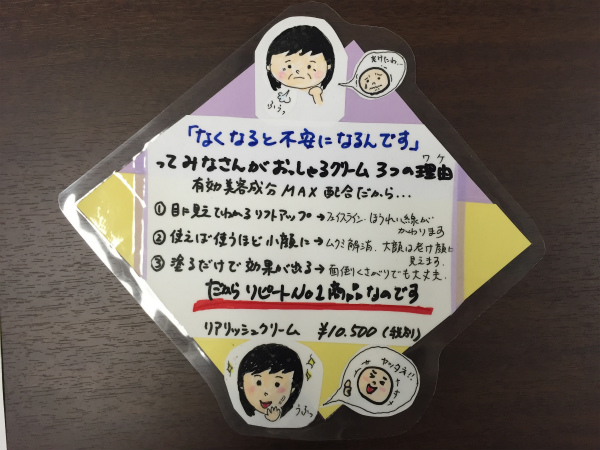 老けたわ...
ふぅっ
「なくなると不安になるんです」
ってみなさんがおっしゃるクリーム 3つの理由
ワケ
有効美容成分MAX配合だから...
① 目に見えてわかるリフトアップ→フェイスライン・ほうれい線が
かわります
② 使えば使うほど小顔に→ムクミ解消、大顔は老け顔に
見えます.
③ 塗るだけで効果が出る→面倒くさがりでも大丈夫.
だからリピートNo1商品なのです
リアリッシュクリーム ¥10.500(税別)
うふっ
ヤッタネ!!